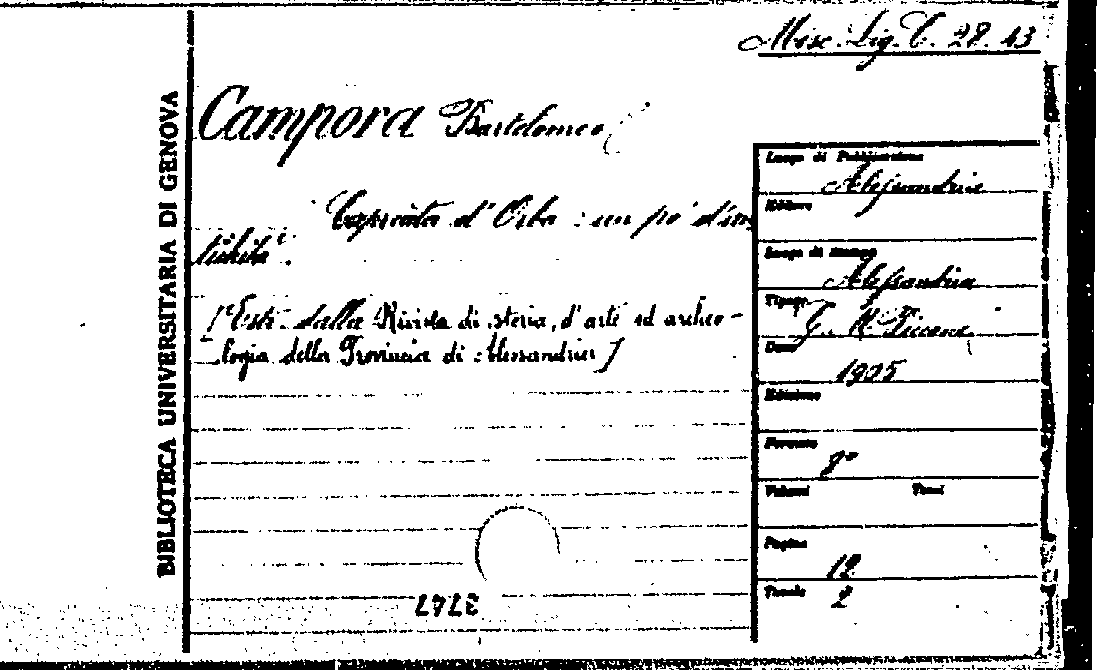 Misc. Lig. C. 28. 13
BIBLIOTECA UNIVERSITARIA DI GENOVA
Campora Bartolomeo
Capriata d'Orba : un po' d'an
tichità.
[Estr. dalla Rivista di storia, d'arte ed archeo-
logia della Provincia di Alessandria]
Luogo di Pubblicazione
Alessandria
Editore
Luogo di stampa
Alessandria
Tipogr.
G. M. Piccone
Data
1905
Edizione
Formato
8°
Volumi Tomi
Pagine
12
Tavole
2
3747